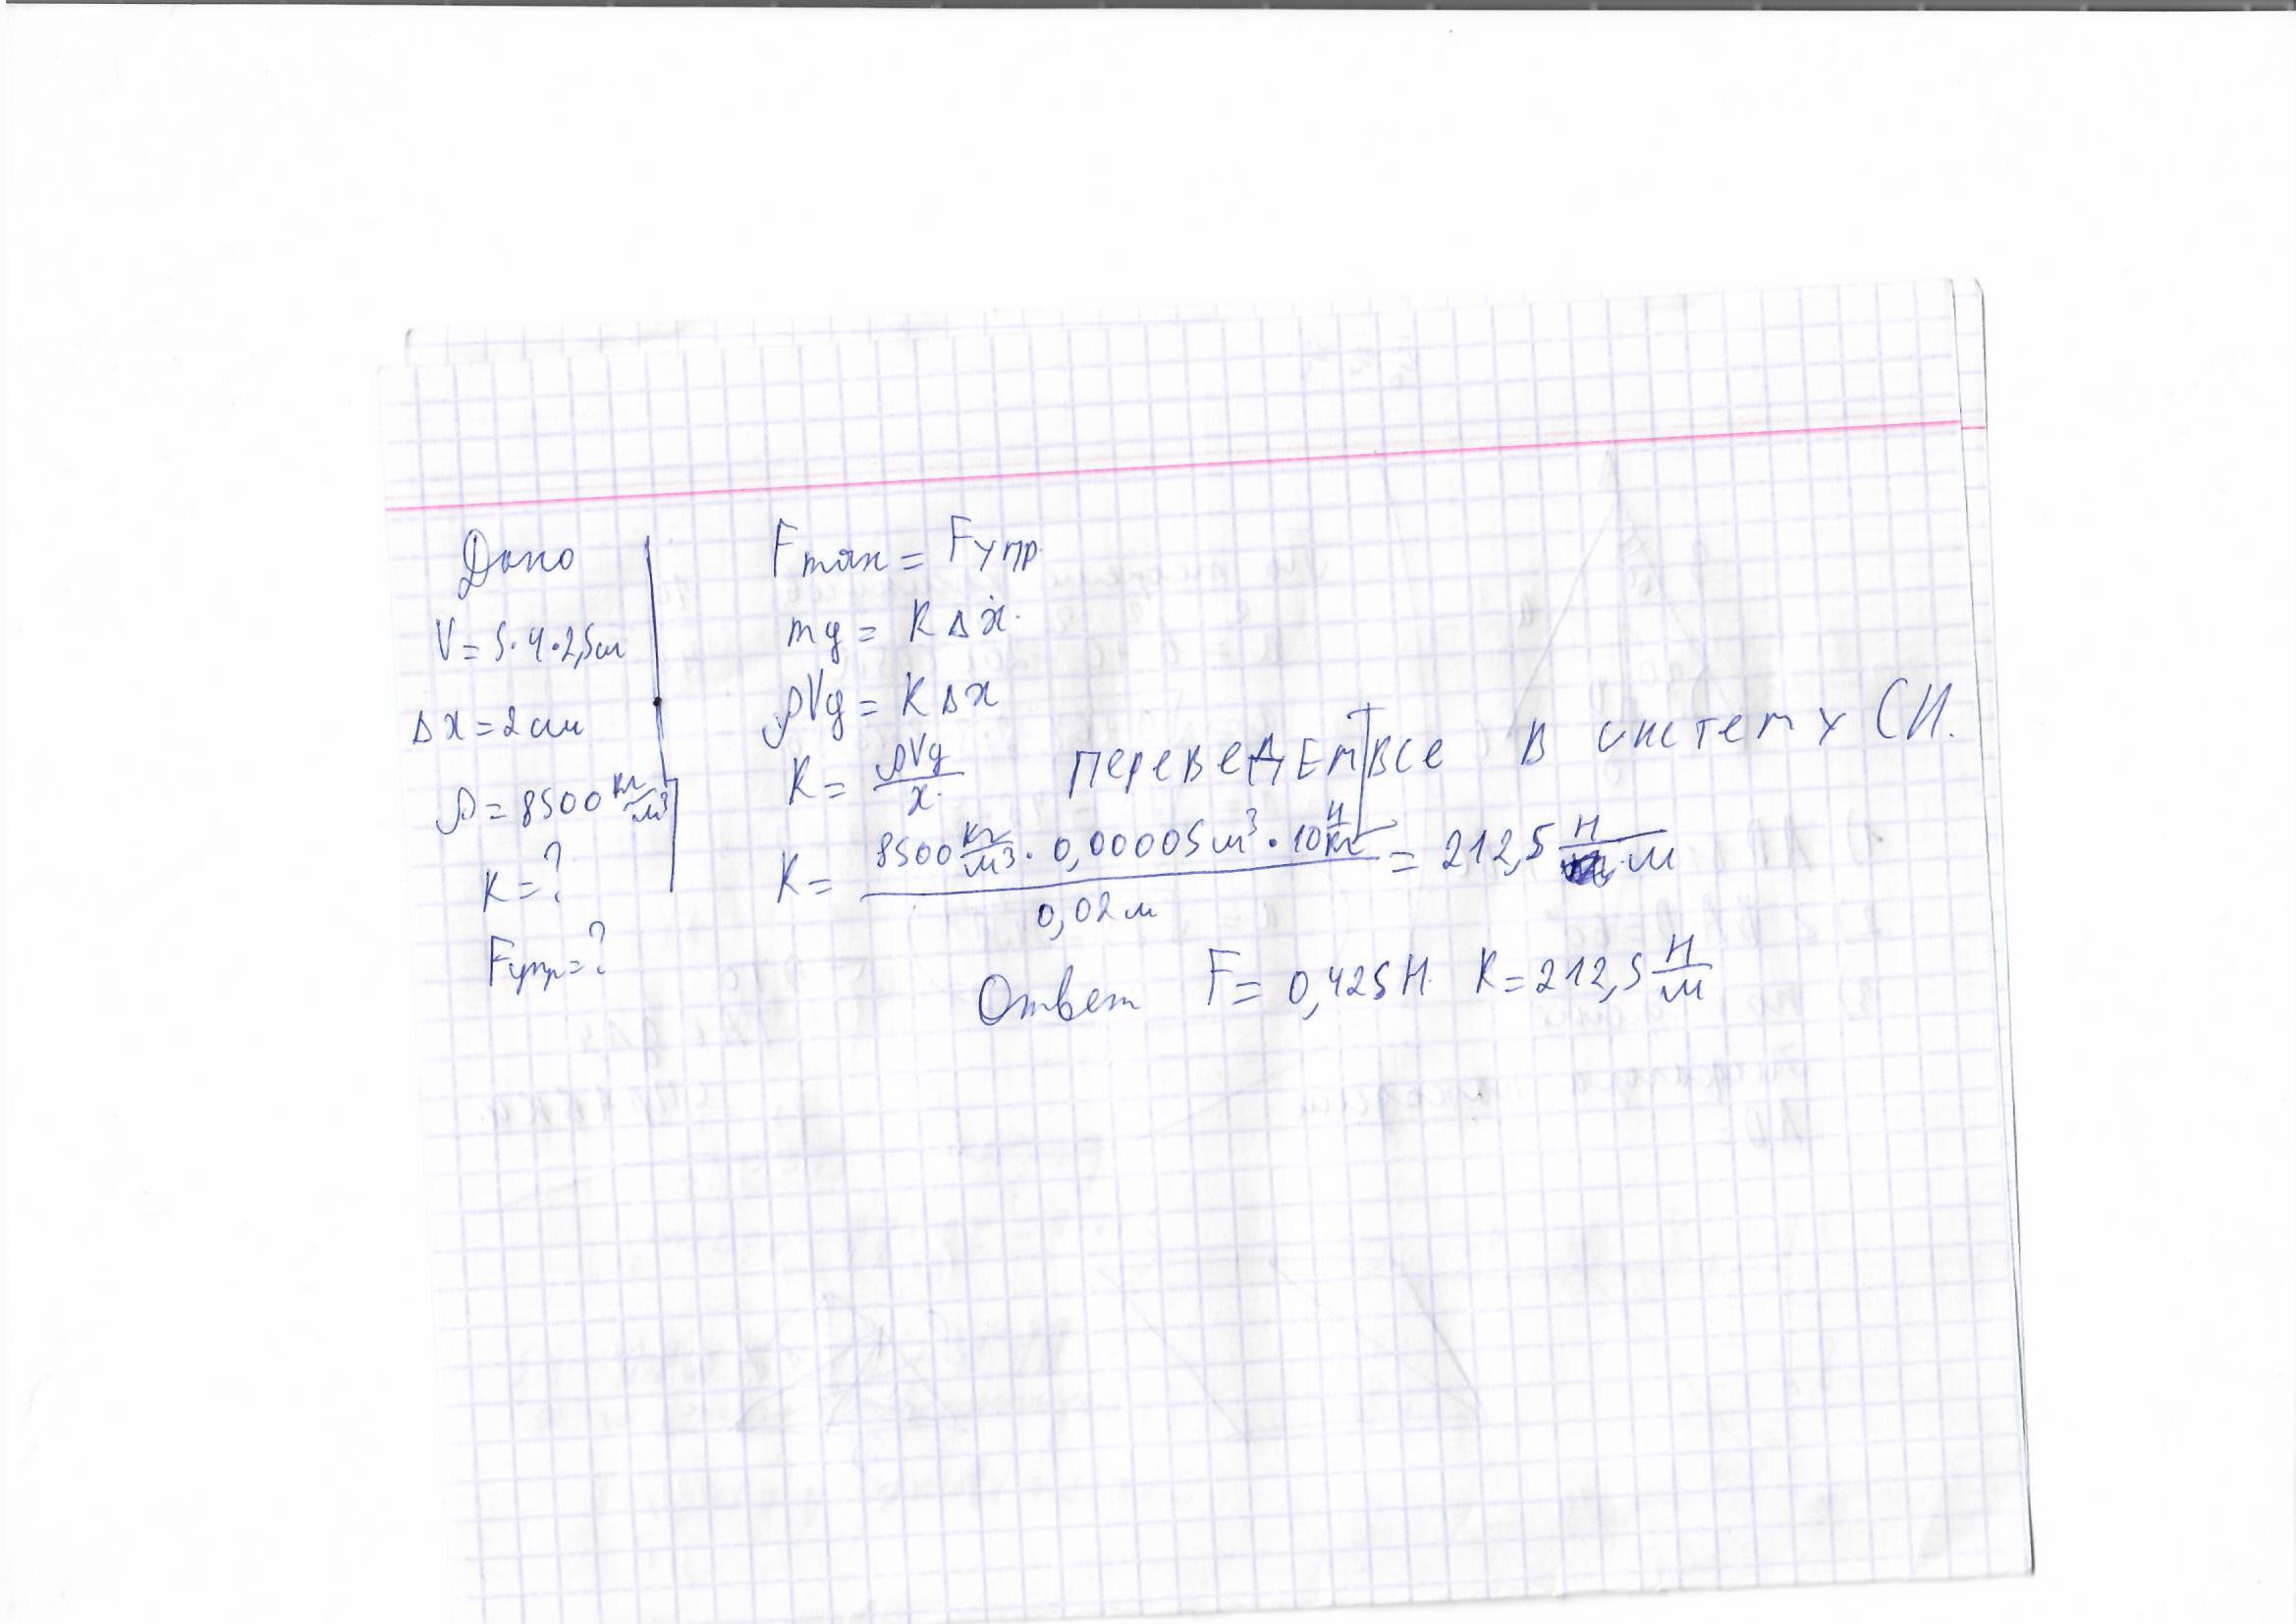 Дано
V = 5·4·2,5см
Δx = 2 см
ρ = 8500 кг/м³
K = ?
Fупр = ?
Fтяж = Fупр.
mg = KΔx.
ρVg = KΔx
K = ρVg/x.
переведЕм все в систему СИ.
K = 8500 кг/м³ · 0,00005 м³ · 10 Н/кг / 0,02 м = 212,5 Н/м
Ответ F = 0,425 Н. K = 212,5 Н/м